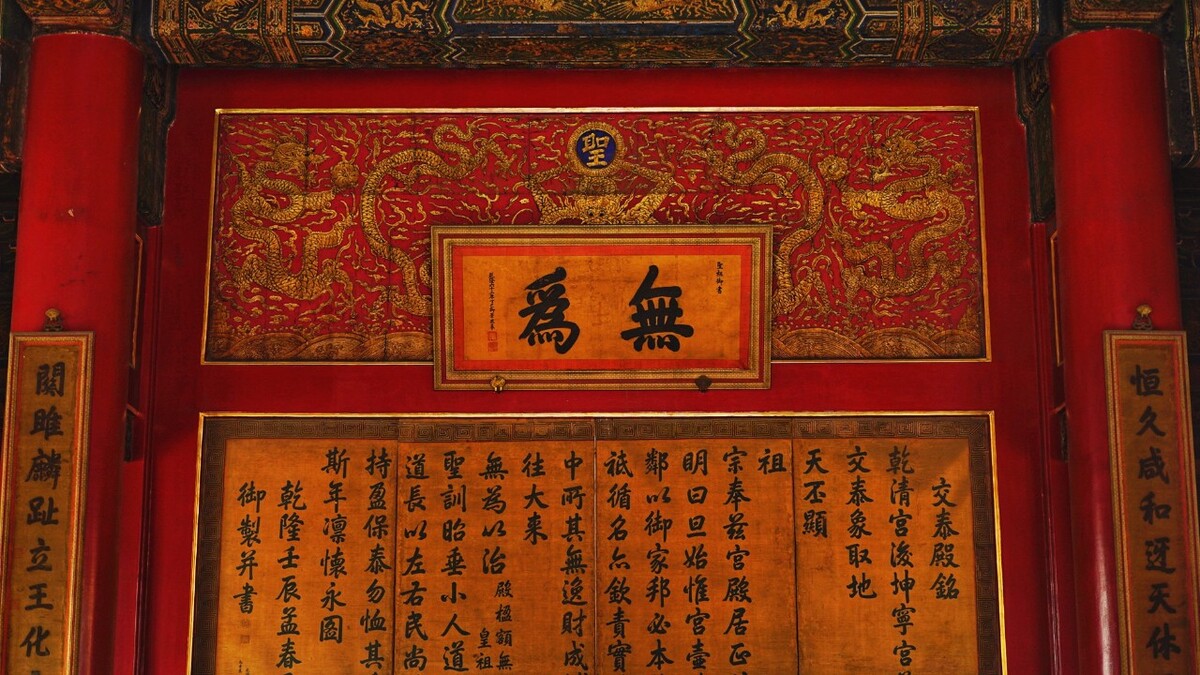 聖
無爲
聖祖御書
恒久咸和迓天休
交泰殿銘
乾清宮後坤寧宮
交泰象取地
天丕顯
祖
宗奉茲宮殿居正
明曰旦始惟宮壼
鄰以御家邦必本
祗循名亦欽責實
中所其無逸財成
往大来
無為以治
殿楹額無
皇祖
聖訓昭垂小人道
道長以左右民尚
持盈保泰勿恤其
斯年凛懷永圖
乾隆壬辰孟春
御製并書
關雎麟趾立王化